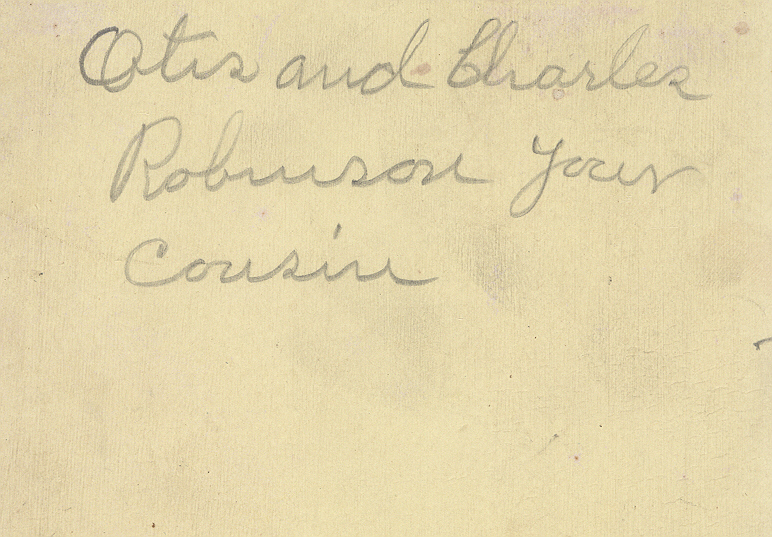 Otis and Charles
Robinson your
cousin